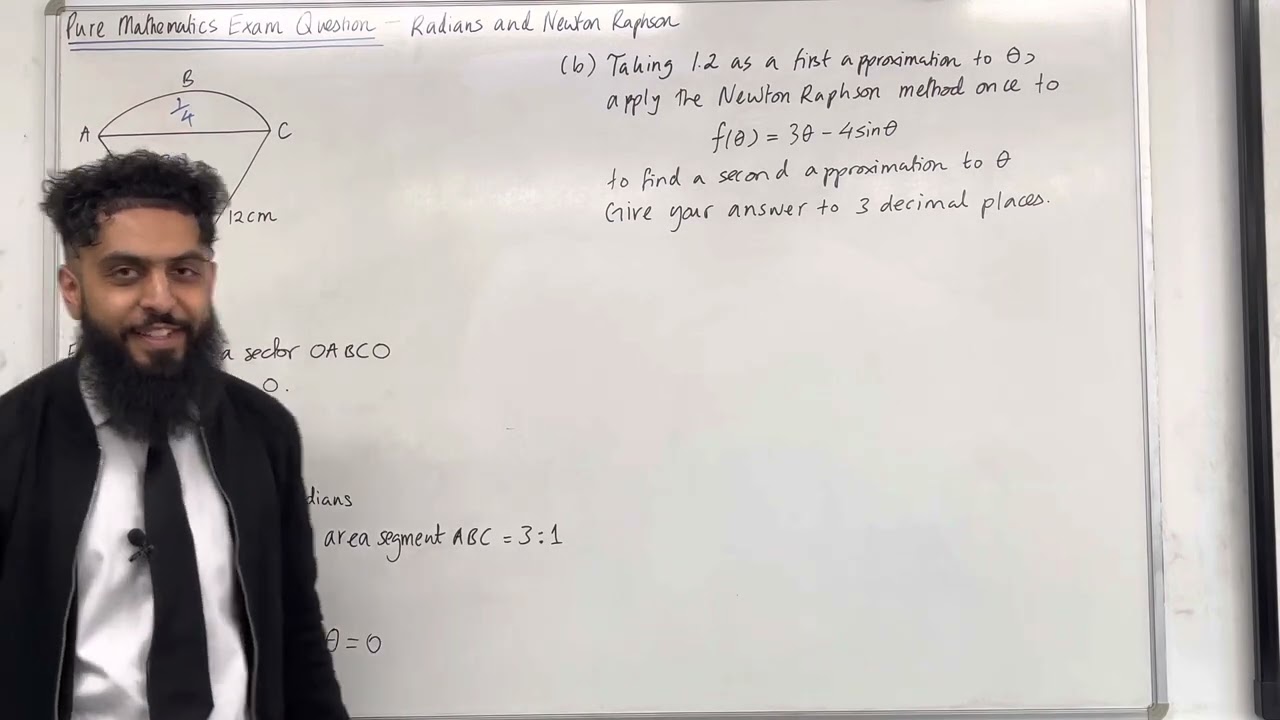 Pure Mathematics Exam Question - Radians and Newton Raphson
B
1/4
A
C
12cm
a sector OABCO
O.
dians
area segment ABC = 3:1
θ = 0
(b) Taking 1.2 as a first approximation to θ,
apply the Newton Raphson method once to
f(θ) = 3θ - 4sinθ
to find a second approximation to θ
Give your answer to 3 decimal places.